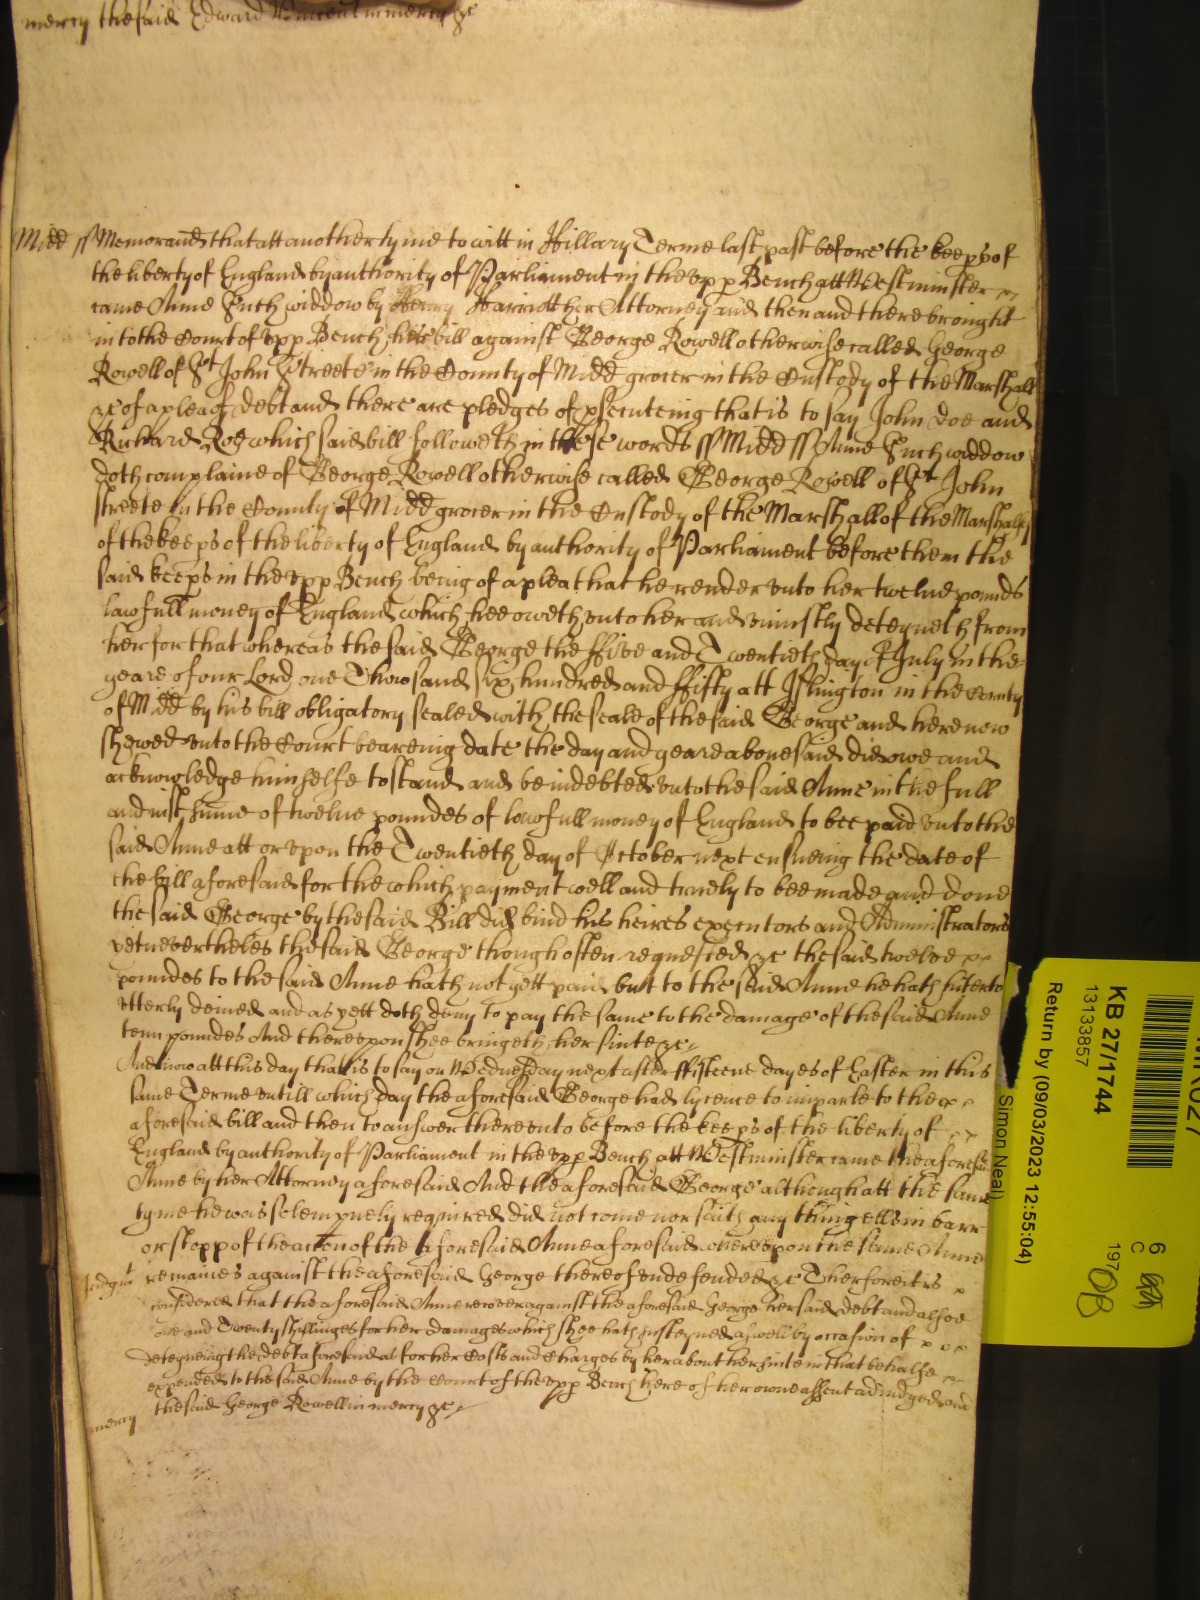 mercy the said Edward Vincent in mercy &c
Midd ss Memorand that att another tyme to witt in Hillary Terme last past before the keeps of
the liberty of England by authority of Parliament in the upp Bench att Westminster
came Anne Such widdow by Henry Harriott her Attorney and then and there brought
into the Court of upp Bench here her bill against George Rowell otherwise called George
Rowell of St John Streete in the County of Midd grocer in the Custody of the Marshall
&c of a plea of debt and there are pledges of psecuteing that is to say John Doe and
Richard Roe which said bill followeth in these words ss Midd ss Anne Such widdow
doth complaine of George Rowell otherwise called George Rowell of St John
streete in the County of Midd grocer in the Custody of the Marshall of the Marshalsy
of the keeps of the liberty of England by authority of Parliament before them the
said keeps in the upp Bench being of a plea that he render unto her twelve pounds
lawfull money of England which hee oweth unto her and uniustly deteyneth from
her for that whereas the said George the ffive and Twentieth day of July in the
yeare of our Lord one Thowsand six hundred and ffifty att Islington in the County
of Midd by his bill obligatory sealed with the seale of the said George and here now
shewed unto the Court beareing date the day and yeare abovesaid did owe and
acknowledge himselfe to stand and be indebted unto the said Anne in the full
and iust sume of twelve poundes of lawfull money of England to bee paid unto the
said Anne att or upon the Twentieth day of October next ensueing the date of
the bill aforesaid for the which payment well and truely to bee made and done
the said George by the said Bill did bind his heires executors and Administrators
yet nevertheles the said George though often requested &c the said twelve
poundes to the said Anne hath not yett paid but to the said Anne he hath hiterto
utterly denied and as yett doth deny to pay the same to the damage of the said Anne
tenn poundes And thereupon shee bringeth her suite &c
And now att this day that is to say on Wednesday next after ffifteene dayes of Easter in this
same Terme untill which day the aforesaid George had lycence to imparle to the
aforesaid bill and then to answer thereunto before the keeps of the liberty of
England by authority of Parliament in the upp Bench att Westminster came the aforesaid
Anne by her Attorney aforesaid And the aforesaid George although att the same
tyme he was solempnely required did not come nor saith any thing ells in barr
or stopp of the acton of the aforesaid Anne aforesaid whereupon the same Anne
Judgmt remaines against the aforesaid George thereof undefended &c Therfore it is
considered that the aforesaid Anne recover against the aforesaid George her said debt and alsoe
one and Twenty shillinges for her damages which shee hath susteyned aswell by occasion of
deteyneing the debt aforesaid as for her Costs and Charges by her about her suite in that behalfe
expended to the said Anne by the Court of the upp Bench here of her owne assent adiudged and
mercy the said George Rowell in mercy &c
KB 27/1744
13133857
Return by (09/03/2023 12:55:04)
Simon Neal)
6
C
197